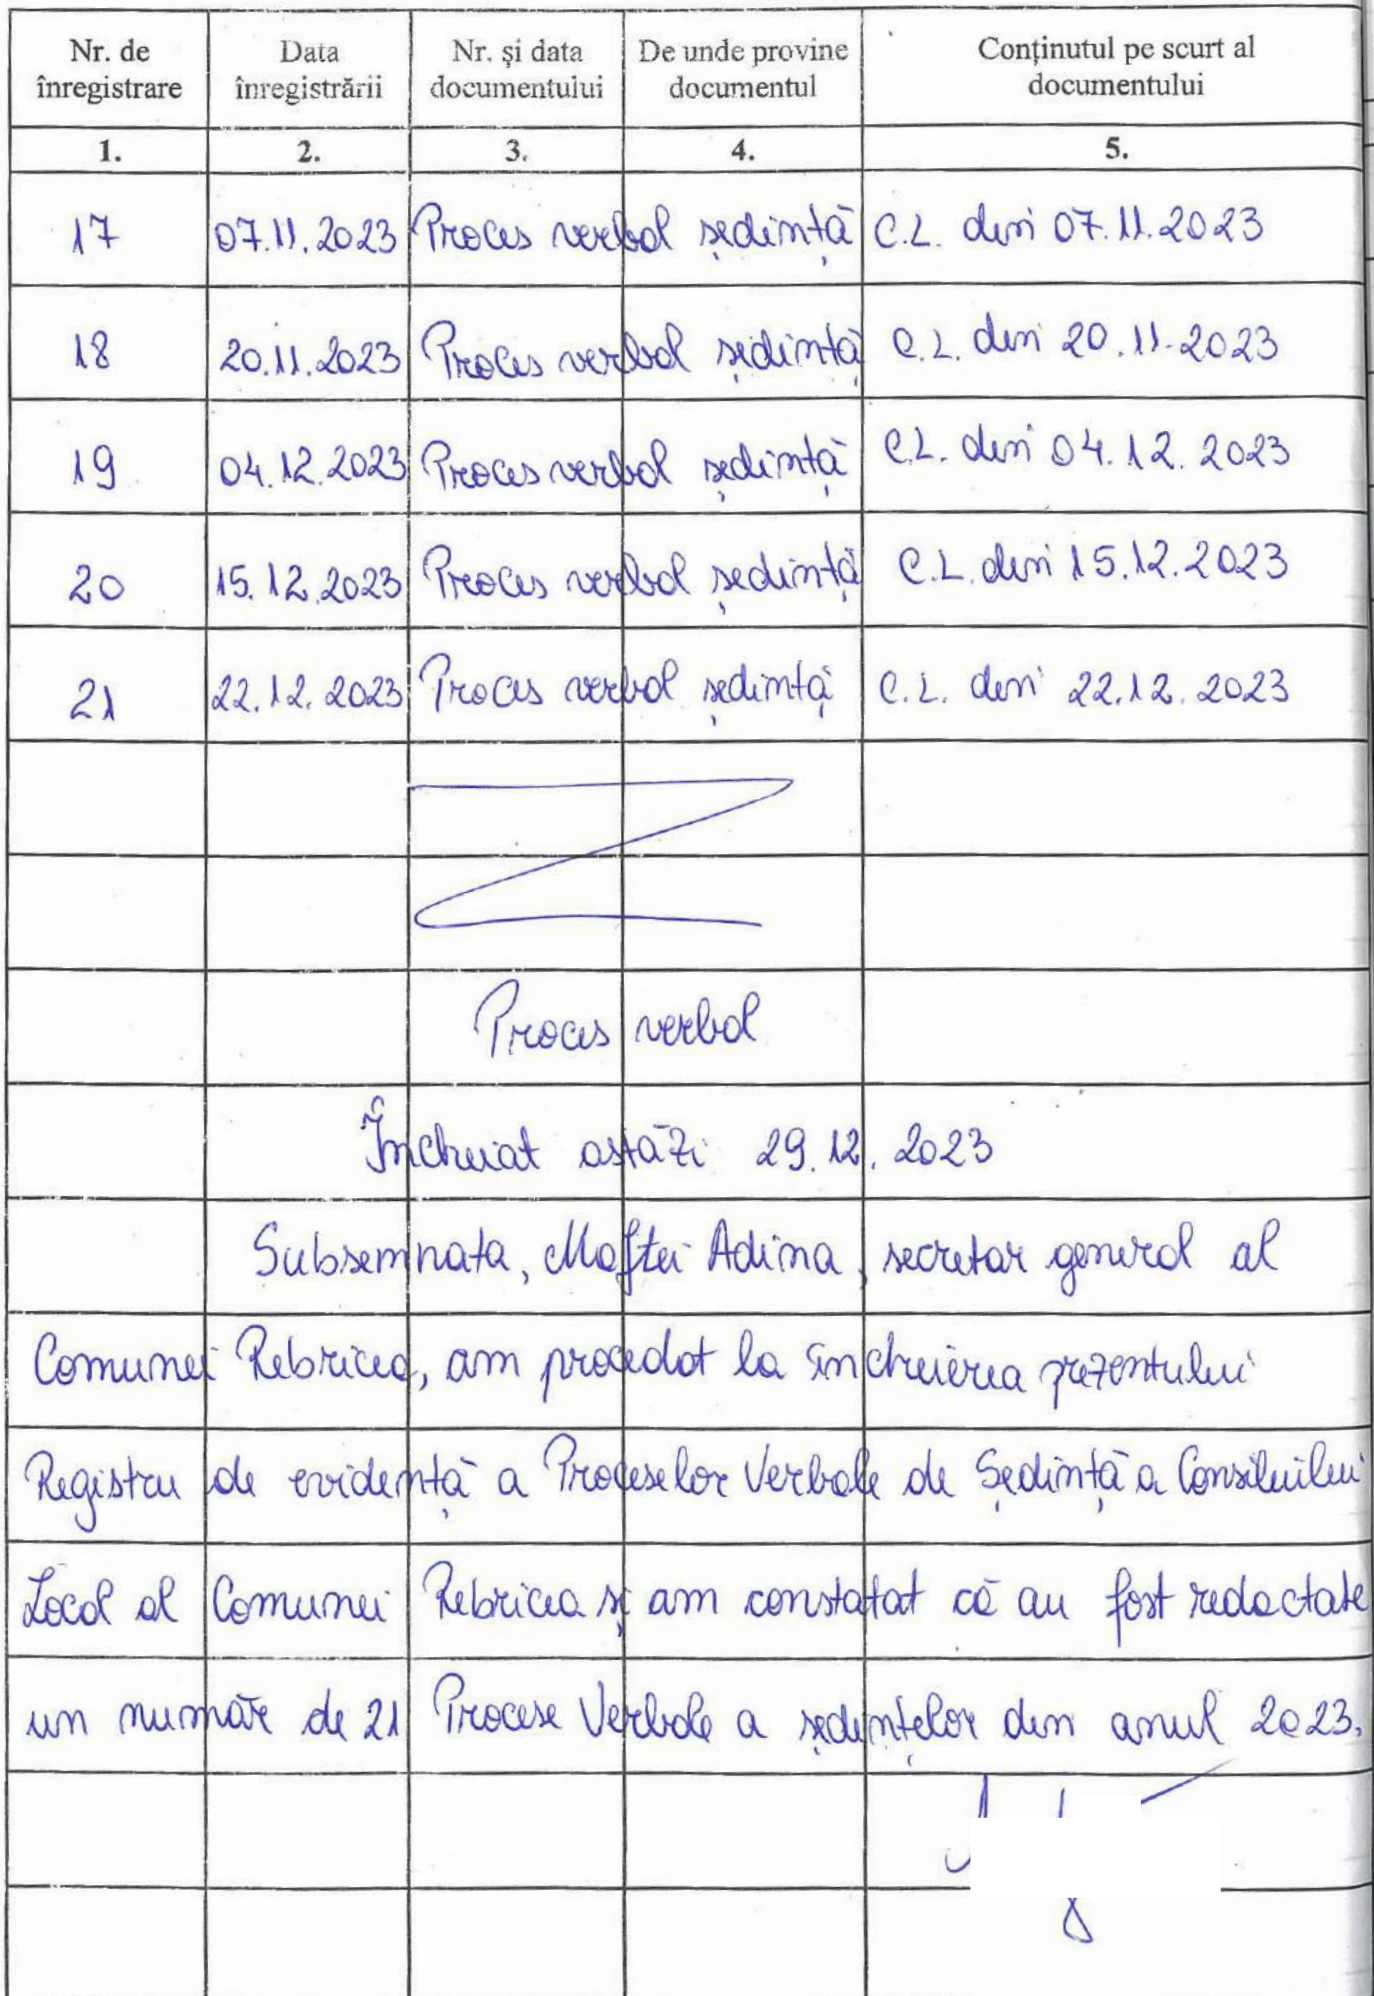 Nr. de înregistrare Data înregistrării Nr. și data documentului De unde provine documentul Conținutul pe scurt al documentului
1. 2. 3. 4. 5.
17 07.11.2023 Proces verbal ședință C.L. din 07.11.2023
18 20.11.2023 Proces verbal ședință C.L. din 20.11.2023
19 04.12.2023 Proces verbal ședință C.L. din 04.12.2023
20 15.12.2023 Proces verbal ședință C.L. din 15.12.2023
21 22.12.2023 Proces verbal ședință C.L. din 22.12.2023
Proces verbal
Închuiat astăzi 29.12.2023
Subsemnata, Maftei Adina, secretar general al
Comunei Rebricea, am procedat la închuierea prezentului
Registru de evidență a Proceselor Verbale de Ședință a Consiluilui
Local al Comunei Rebricea și am constatat că au fost redactate
un număr de 21 Procese Verbale a ședințelor din anul 2023.